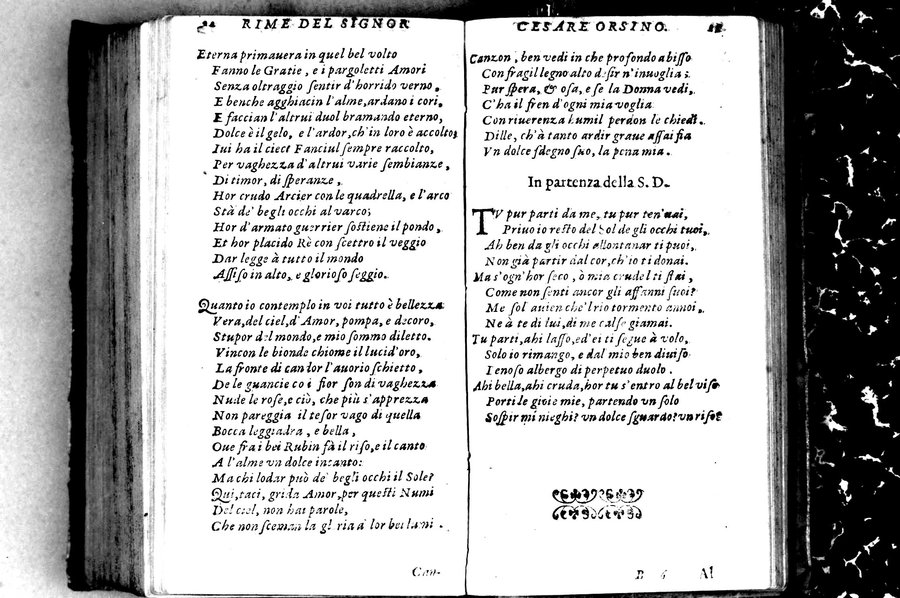 RIME DEL SIGNOR
Eterna primauera in quel bel volto
Fanno le Gratie, e i pargoletti Amori
Senza oltraggio sentir d'horrido verno,
E benche agghiacin l'alme, ardano i cori,
E faccian l'altrui duol bramando eterno,
Dolce è il gelo, e l'ardor, ch'in loro è accolto,
Iui ha il cieco Fanciul sempre raccolto,
Per vaghezza d'altrui varie sembianze,
Di timor, di speranze,
Hor crudo Arcier con le quadrella, e l'arco
Stà de' begli occhi al varco;
Hor d'armato guerrier sostiene il pondo,
Et hor placido Rè con scettro il veggio
Dar legge à tutto il mondo
Assiso in alto, e glorioso seggio.
Quanto io contemplo in voi tutto è bellezza
Vera, del ciel, d'Amor, pompa, e decoro,
Stupor del mondo, e mio sommo diletto.
Vincon le bionde chiome il lucid'oro,
La fronte di candor l'auorio schietto,
De le guancie co i fior son di vaghezza
Nude le rose, e ciò, che più s'apprezza
Non pareggia il tesor vago di quella
Bocca leggiadra, e bella,
Oue fra i bei Rubin fà il riso, e il canto
A l'alme vn dolce incanto:
Ma chi lodar può de' begli occhi il Sole?
Qui, taci, grida Amor, per questi Numi
Del ciel, non hai parole,
Che non sceman la gloria a' lor bei lumi.
Can-
CESARE ORSINO.
Canzon, ben vedi in che profondo abisso
Con fragil legno alto desir n'inuoglia;
Pur spera, & osa, e se la Donna vedi,
C'ha il fren d'ogni mia voglia
Con riuerenza humil perdon le chiedi.
Dille, ch'à tanto ardir graue assai fia
Vn dolce sdegno suo, la pena mia.
In partenza della S. D.
TV pur parti da me, tu pur ten'vai,
Priuo io resto del Sol de gli occhi tuoi,
Ah ben da gli occhi allontanar ti puoi,
Non già partir dal cor, ch'io ti donai.
Ma s'ogn'hor seco, ò mia crudel ti stai,
Come non senti ancor gli affanni suoi?
Me sol auien che'l rio tormento annoi,
Ne à te di lui, di me calse giamai.
Tu parti, ahi lasso, ed'ei ti segue à volo,
Solo io rimango, e dal mio ben diuiso
Penoso albergo di perpetuo duolo.
Ahi bella, ahi cruda, hor tu s'entro al bel viso
Porti le gioie mie, partendo vn solo
Sospir mi nieghi? vn dolce sguardo? vn riso?
B 6 Al